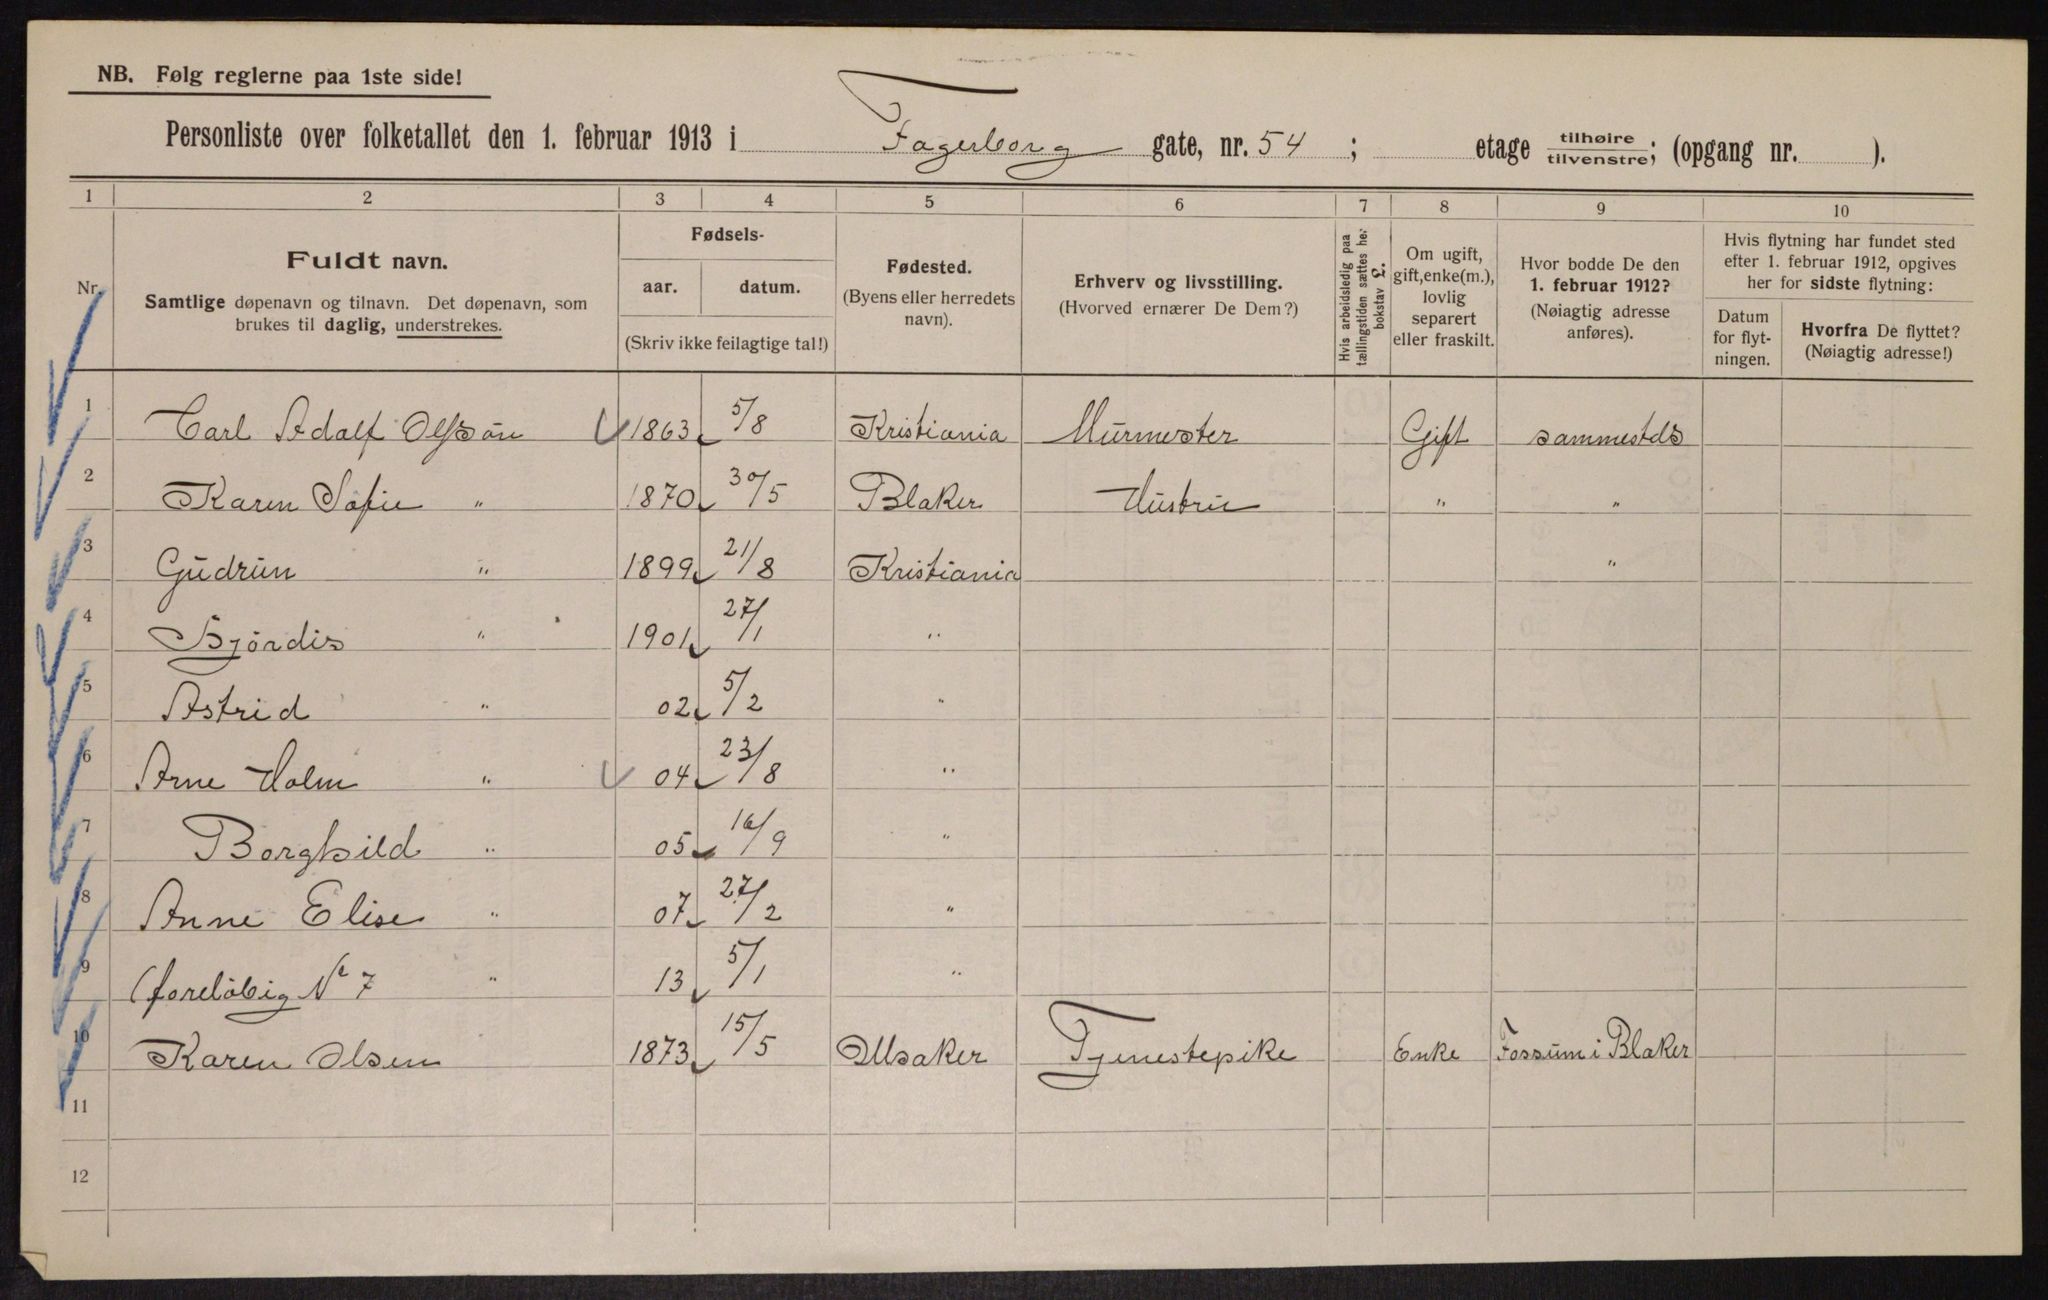 NB. Følg reglerne paa 1ste side!
Personliste over folketallet den 1. februar 1913 i Fagerborg gate, nr. 54 ; etage tilhøire/tilvenstre; (opgang nr. ).
1 2 3 4 5 6 7 8 9 10
Nr.
Fuldt navn.
Samtlige døpenavn og tilnavn. Det døpenavn, som
brukes til daglig, understrekes.
Fødsels-
aar. datum.
(Skriv ikke feilagtige tal!)
Fødested.
(Byens eller herredets
navn).
Erhverv og livsstilling.
(Hvorved ernærer De Dem?)
Hvis arbeidsledig paa
tællingstiden sættes her
bokstav L.
Om ugift,
gift, enke(m.),
lovlig
separert
eller fraskilt.
Hvor bodde De den
1. februar 1912?
(Nøiagtig adresse
anføres).
Hvis flytning har fundet sted
efter 1. februar 1912, opgives
her for sidste flytning:
Datum
for flyt-
ningen.
Hvorfra De flyttet?
(Nøiagtig adresse!)
1 Carl Adolf Olsson 1863 5/8 Kristiania Murmester Gift sammesteds
2 Karen Sofie " 1870 30/5 Blaker Hustru " "
3 Gudrun " 1899 21/8 Kristiania "
4 Hjørdis " 1901 27/1 "
5 Astrid " 02 5/2 "
6 Arne Holm " 04 23/8 "
7 Borghild " 05 16/9 "
8 Anne Elise " 07 27/2 "
9 (foreløbig No 7 " 13 5/1 "
10 Karen Olsen 1873 15/5 Ulsaker Tjenestepike Enke Fossum i Blaker
11
12